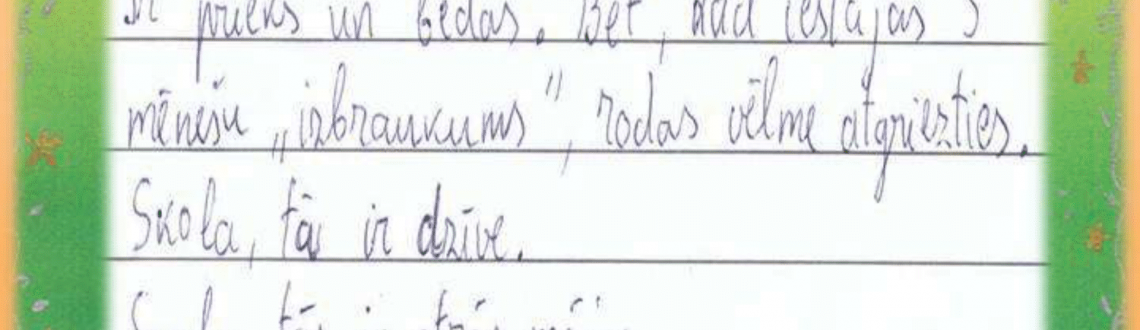 ir prieks un bēdas. Bet, kad iestājas 3
mēnešu „izbraukums”, rodas vēlme atgriezties.
Skola, tā ir dzīve.